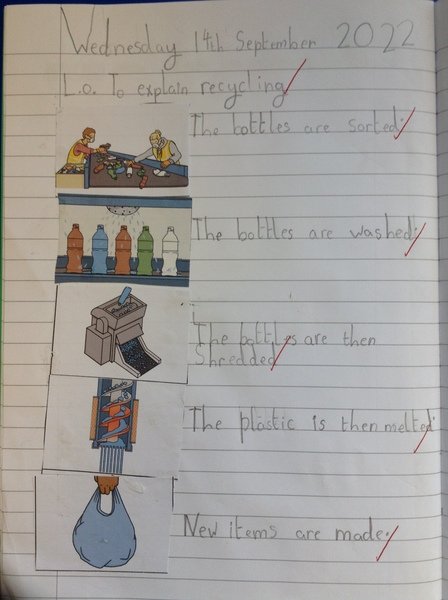 Wednesday 14th September 2022
L.o. To explain recycling
The bottles are sorted.
The bottles are washed.
The bottles are then
Shredded
The plastic is then melted.
New items are made.